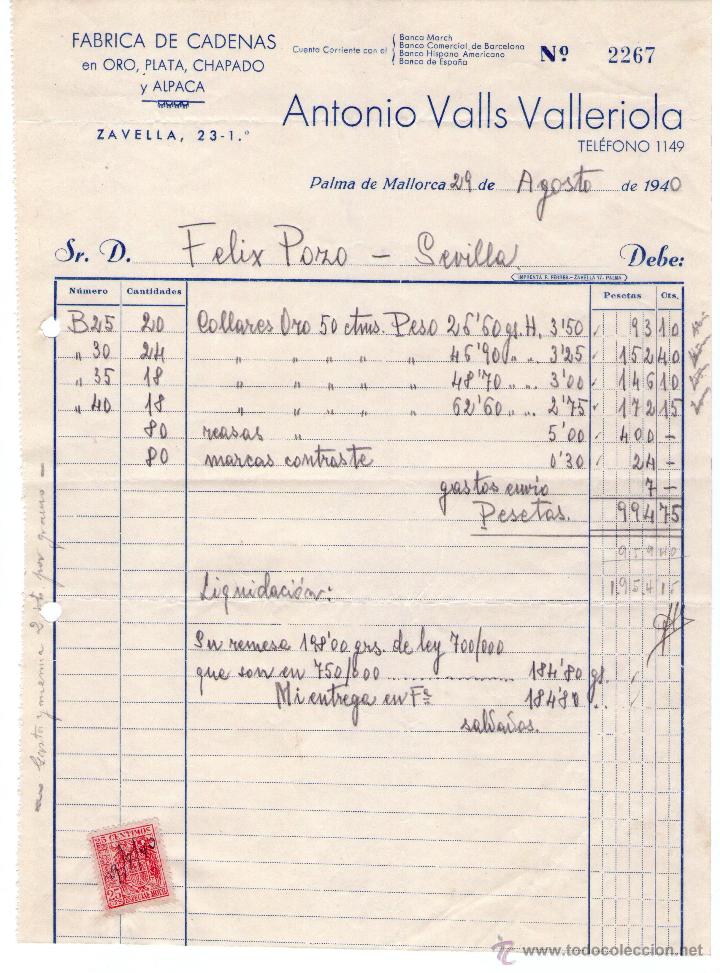 FABRICA DE CADENAS
en ORO, PLATA, CHAPADO
y ALPACA
ZAVELLA, 23-1.º
Cuenta Corriente con el
Banca March
Banco Comercial de Barcelona
Banco Hispano Americano
Banco de España
Nº 2267
Antonio Valls Valleriola
TELÉFONO 1149
Palma de Mallorca 29 de Agosto de 1940
Sr. D. Felix Pozo - Sevilla Debe:
IMPRENTA F. FERRER.- ZAVELLA 17.- PALMA
Número Cantidades Pesetas Cts.
B25 20 Collares Oro 50 ctms. Peso 26'60 gs. H. 3'50 93 10
" 30 24 " " " " 46'90 " " 3'25 152 40
" 35 18 " " " " 48'70 " " 3'00 146 10
" 40 18 " " " " 62'60 " " 2'75 172 15
80 reasas " 5'00 400 -
80 marcas contraste 0'30 24 -
gastos envio 7 -
Pesetas. 994 75
959 40
1954 15
Liquidación:
Su remesa 198'00 grs. de ley 700/000
que son en 750/000 184'80 gs.
Mi entrega en Fª 184'80 "
saldados.
por gramo -
25 CENTIMOS
25
ESPECIAL MOVIL
www.todocoleccion.net